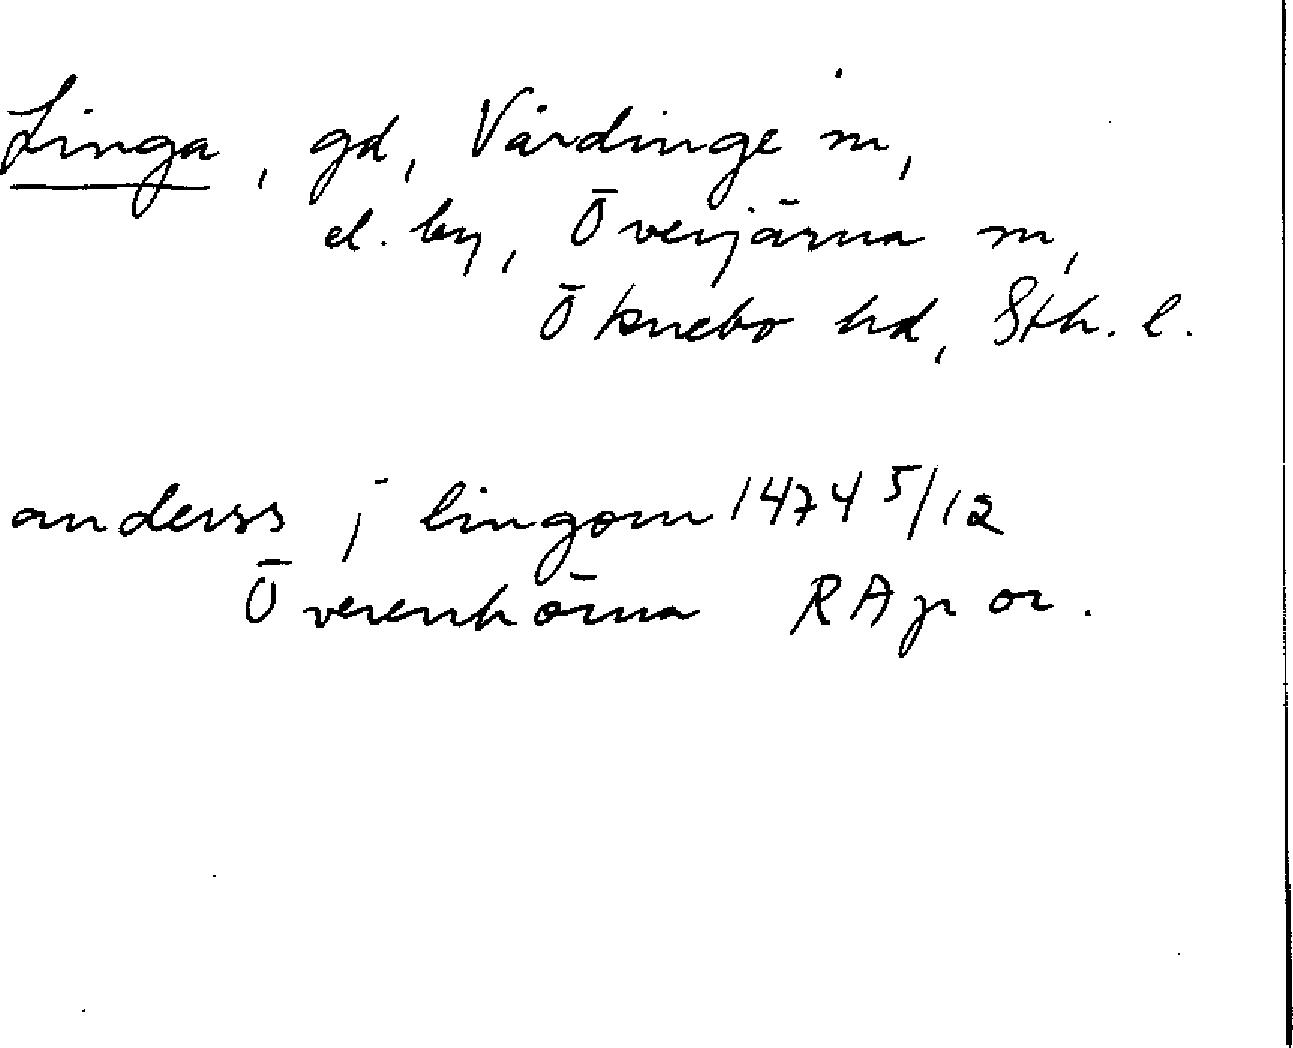 Linga, gd, Vårdinge sn,
el. by, Överjärna sn,
Öknebo hd, Sth. l.
anderss j lingom 1474 5/12
Överenhörna RAp or.